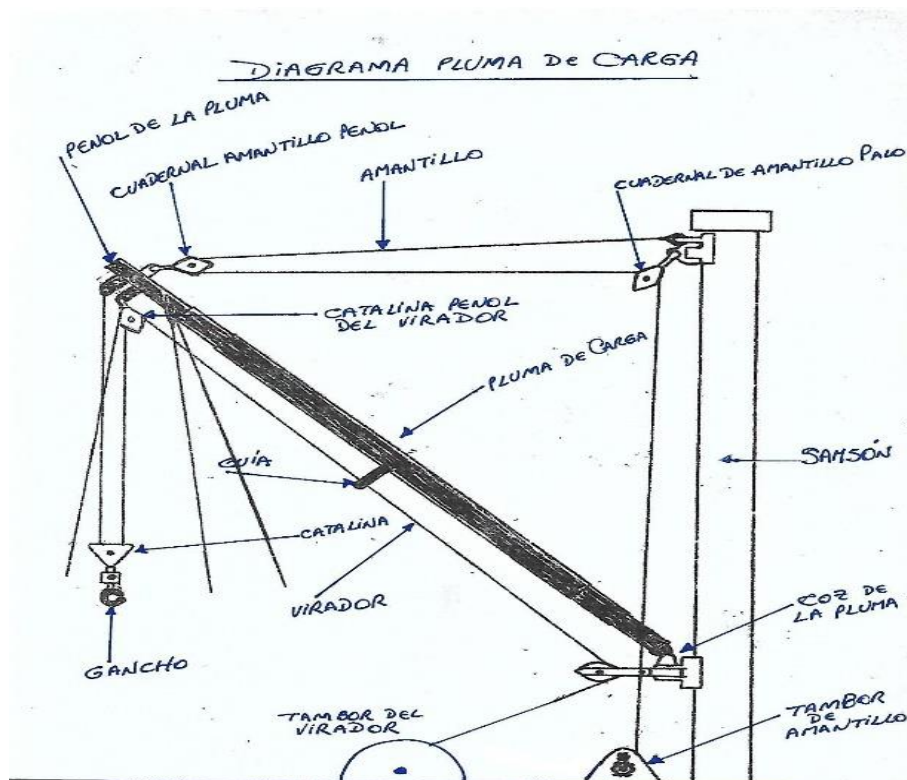 DIAGRAMA PLUMA DE CARGA
PENOL DE LA PLUMA
CUADERNAL AMANTILLO PENOL
AMANTILLO
CUADERNAL DE AMANTILLO PALO
CATALINA PENOL
DEL VIRADOR
PLUMA DE CARGA
GUÍA
SAMSÓN
CATALINA
VIRADOR
COZ DE
LA PLUMA
GANCHO
TAMBOR DEL
VIRADOR
TAMBOR
DE
AMANTILLO